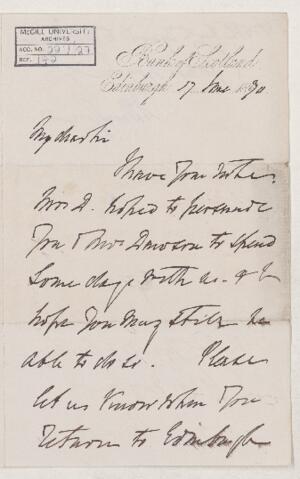 McGILL UNIVERSITY
ARCHIVES
ACC. NO.
REF.
Bank of Scotland
Edinburgh 17 June 1870
My dear Sir
I have your note.
Mrs D. hoped to persuade
you & Mrs Dawson to spend
some days with us. & I
hope you may still be
able to do so. Please
let us know when you
return to Edinburgh